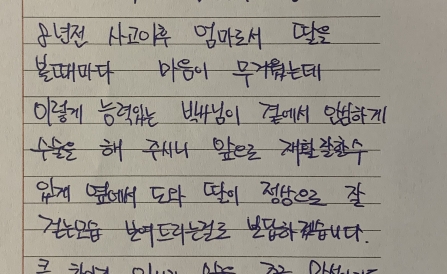 8년전 사고이후 엄마로서 딸을
볼때마다 마음이 무거웠는데
이렇게 능력있는 박사님이 곁에서 완벽하게
수술을 해 주시니 앞으로 재활잘할수
있게 옆에서 도와 딸이 정상으로 잘
걷는모습 보여드리는걸로 보답하겠습니다.